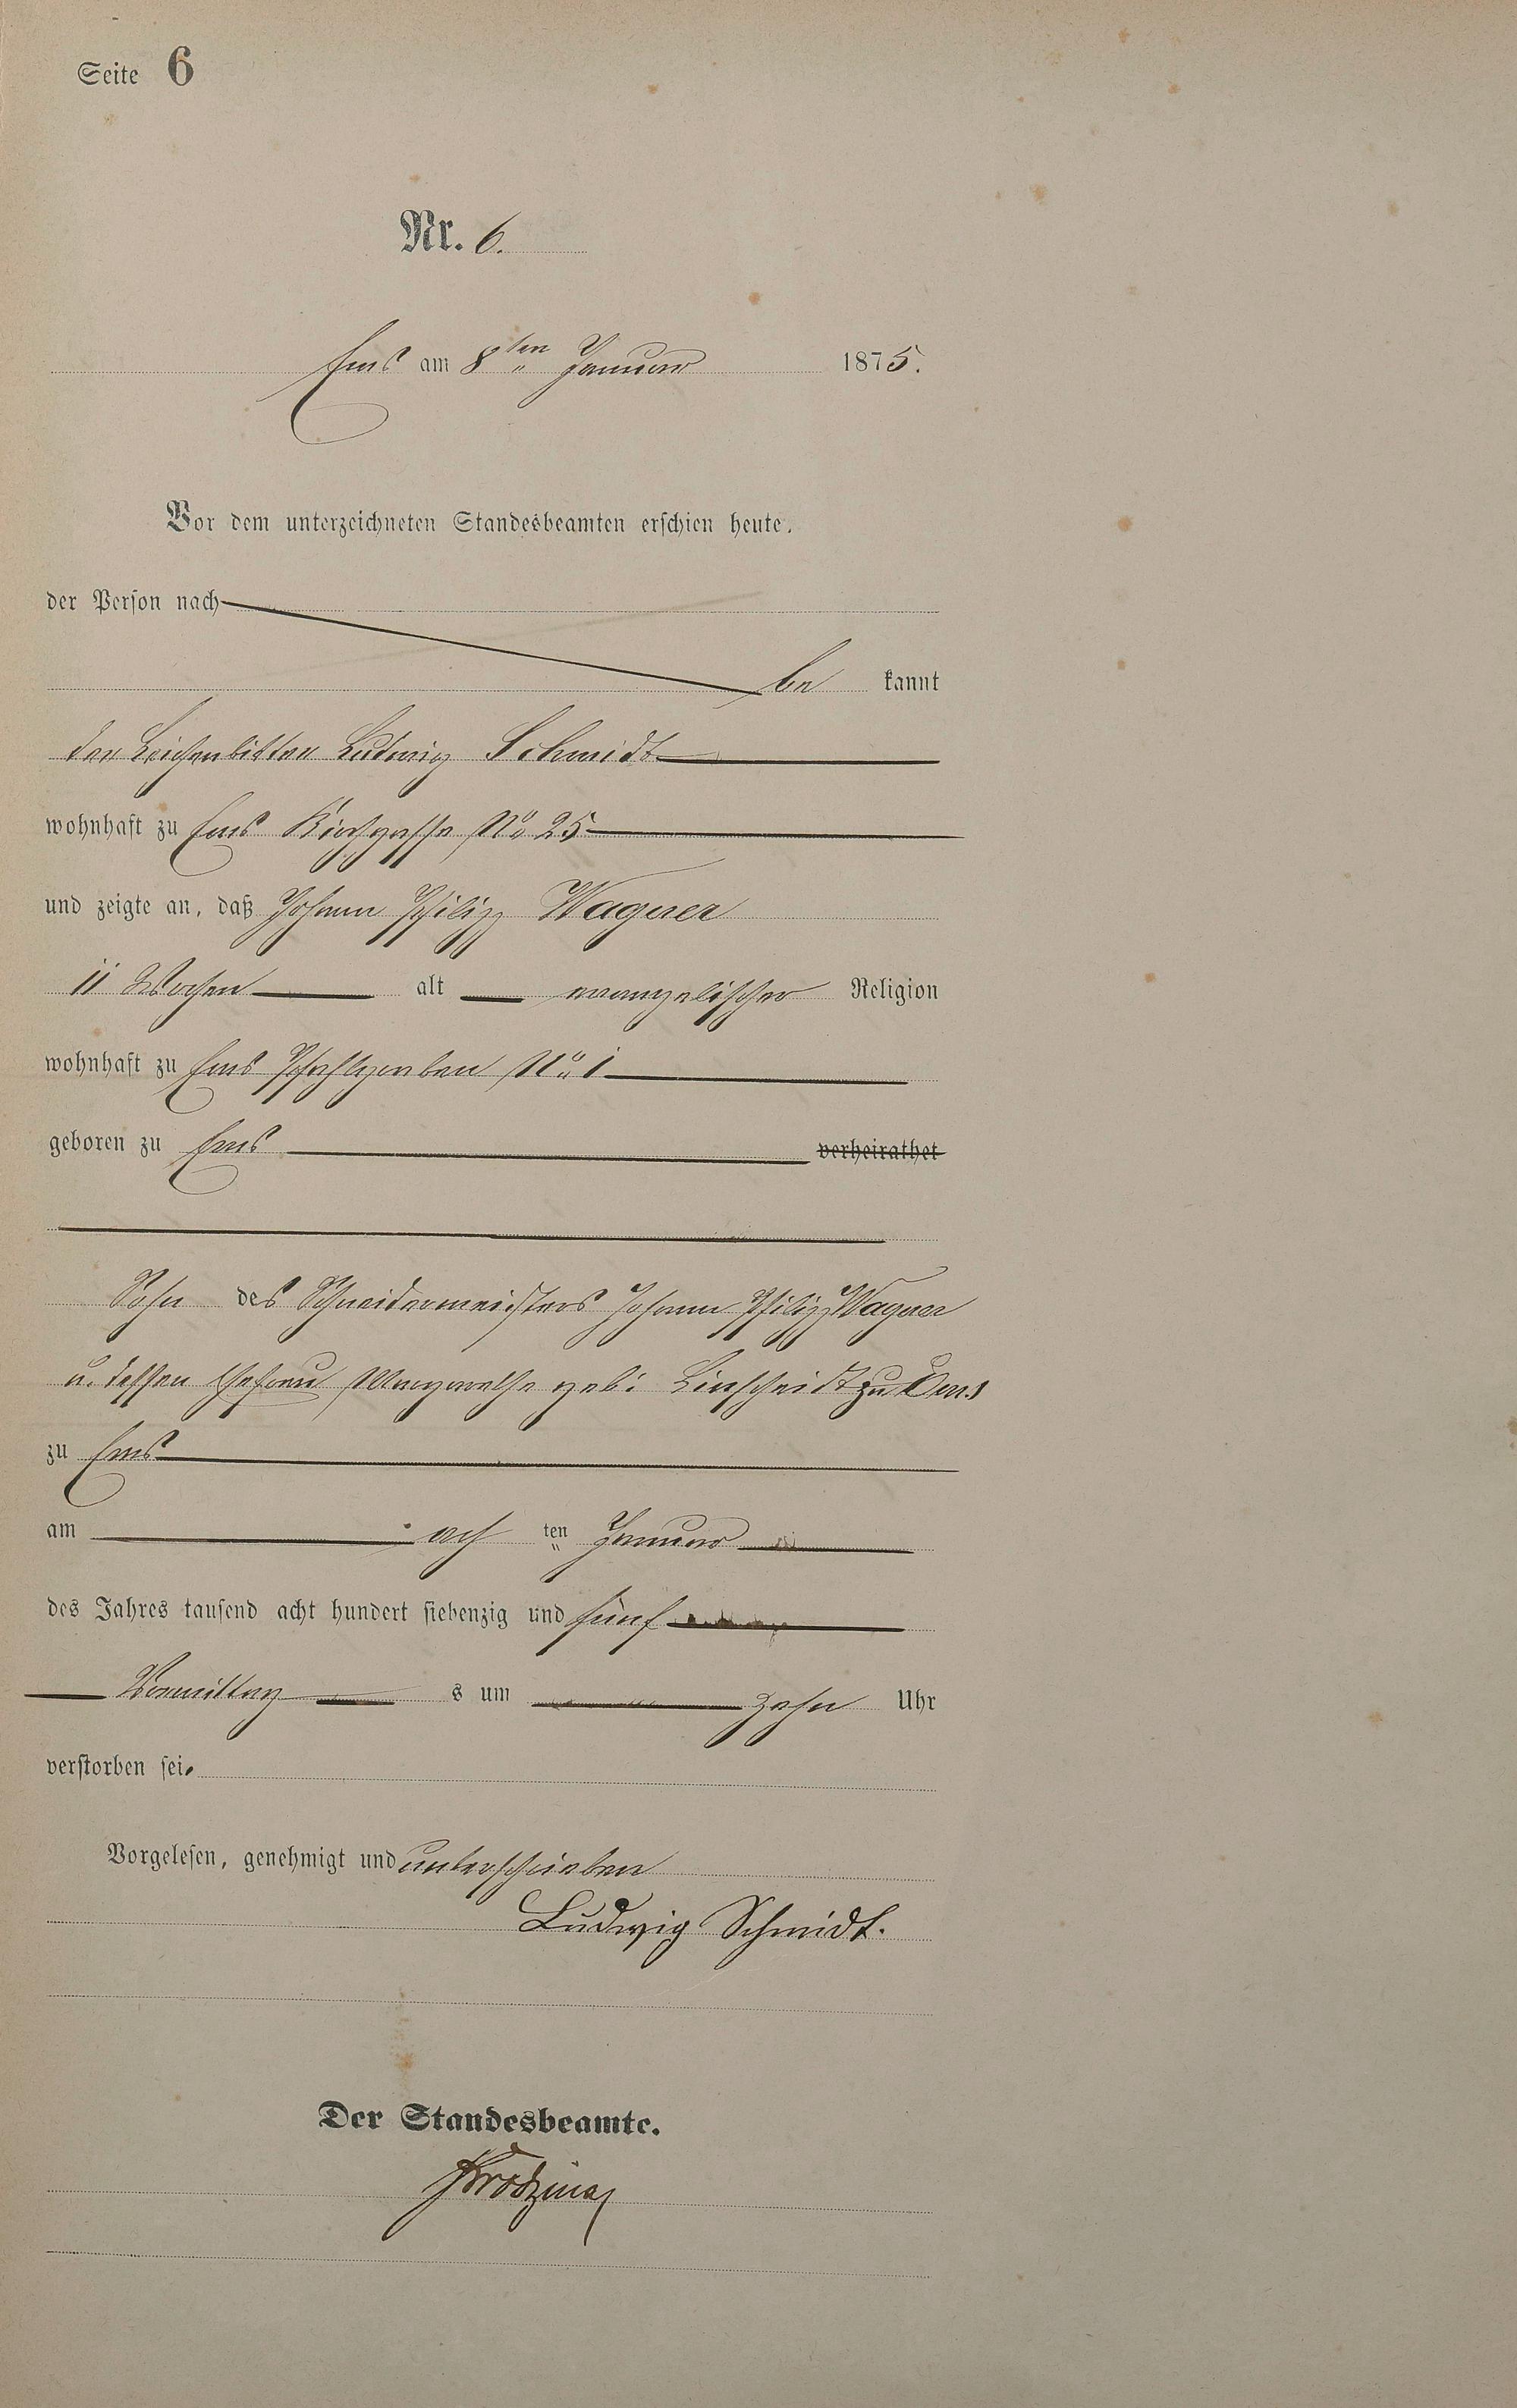 Seite 6
Nr. 6.
Ems am 8ten Januar 1875.
Vor dem unterzeichneten Standesbeamten erschien heute,
der Person nach
be kannt
der Leichenbitter Ludwig Schmidt
wohnhaft zu Ems Kirchgasse No 25
und zeigte an, daß Johann Philipp Wagner
11 Wochen alt evangelischer Religion
wohnhaft zu Ems Pfahlgraben No 1
geboren zu Ems verheirathet
Sohn des Schneidermeisters Johann Philipp Wagner
u. dessen Ehefrau Margarethe geb: Linscheidt zu Ems
zu Ems
am ach ten Januar
des Jahres tausend acht hundert siebenzig und fünf
Vormittag s um zehn Uhr
verstorben sei.
Vorgelesen, genehmigt und unterschrieben
Ludwig Schmidt.
Der Standesbeamte.